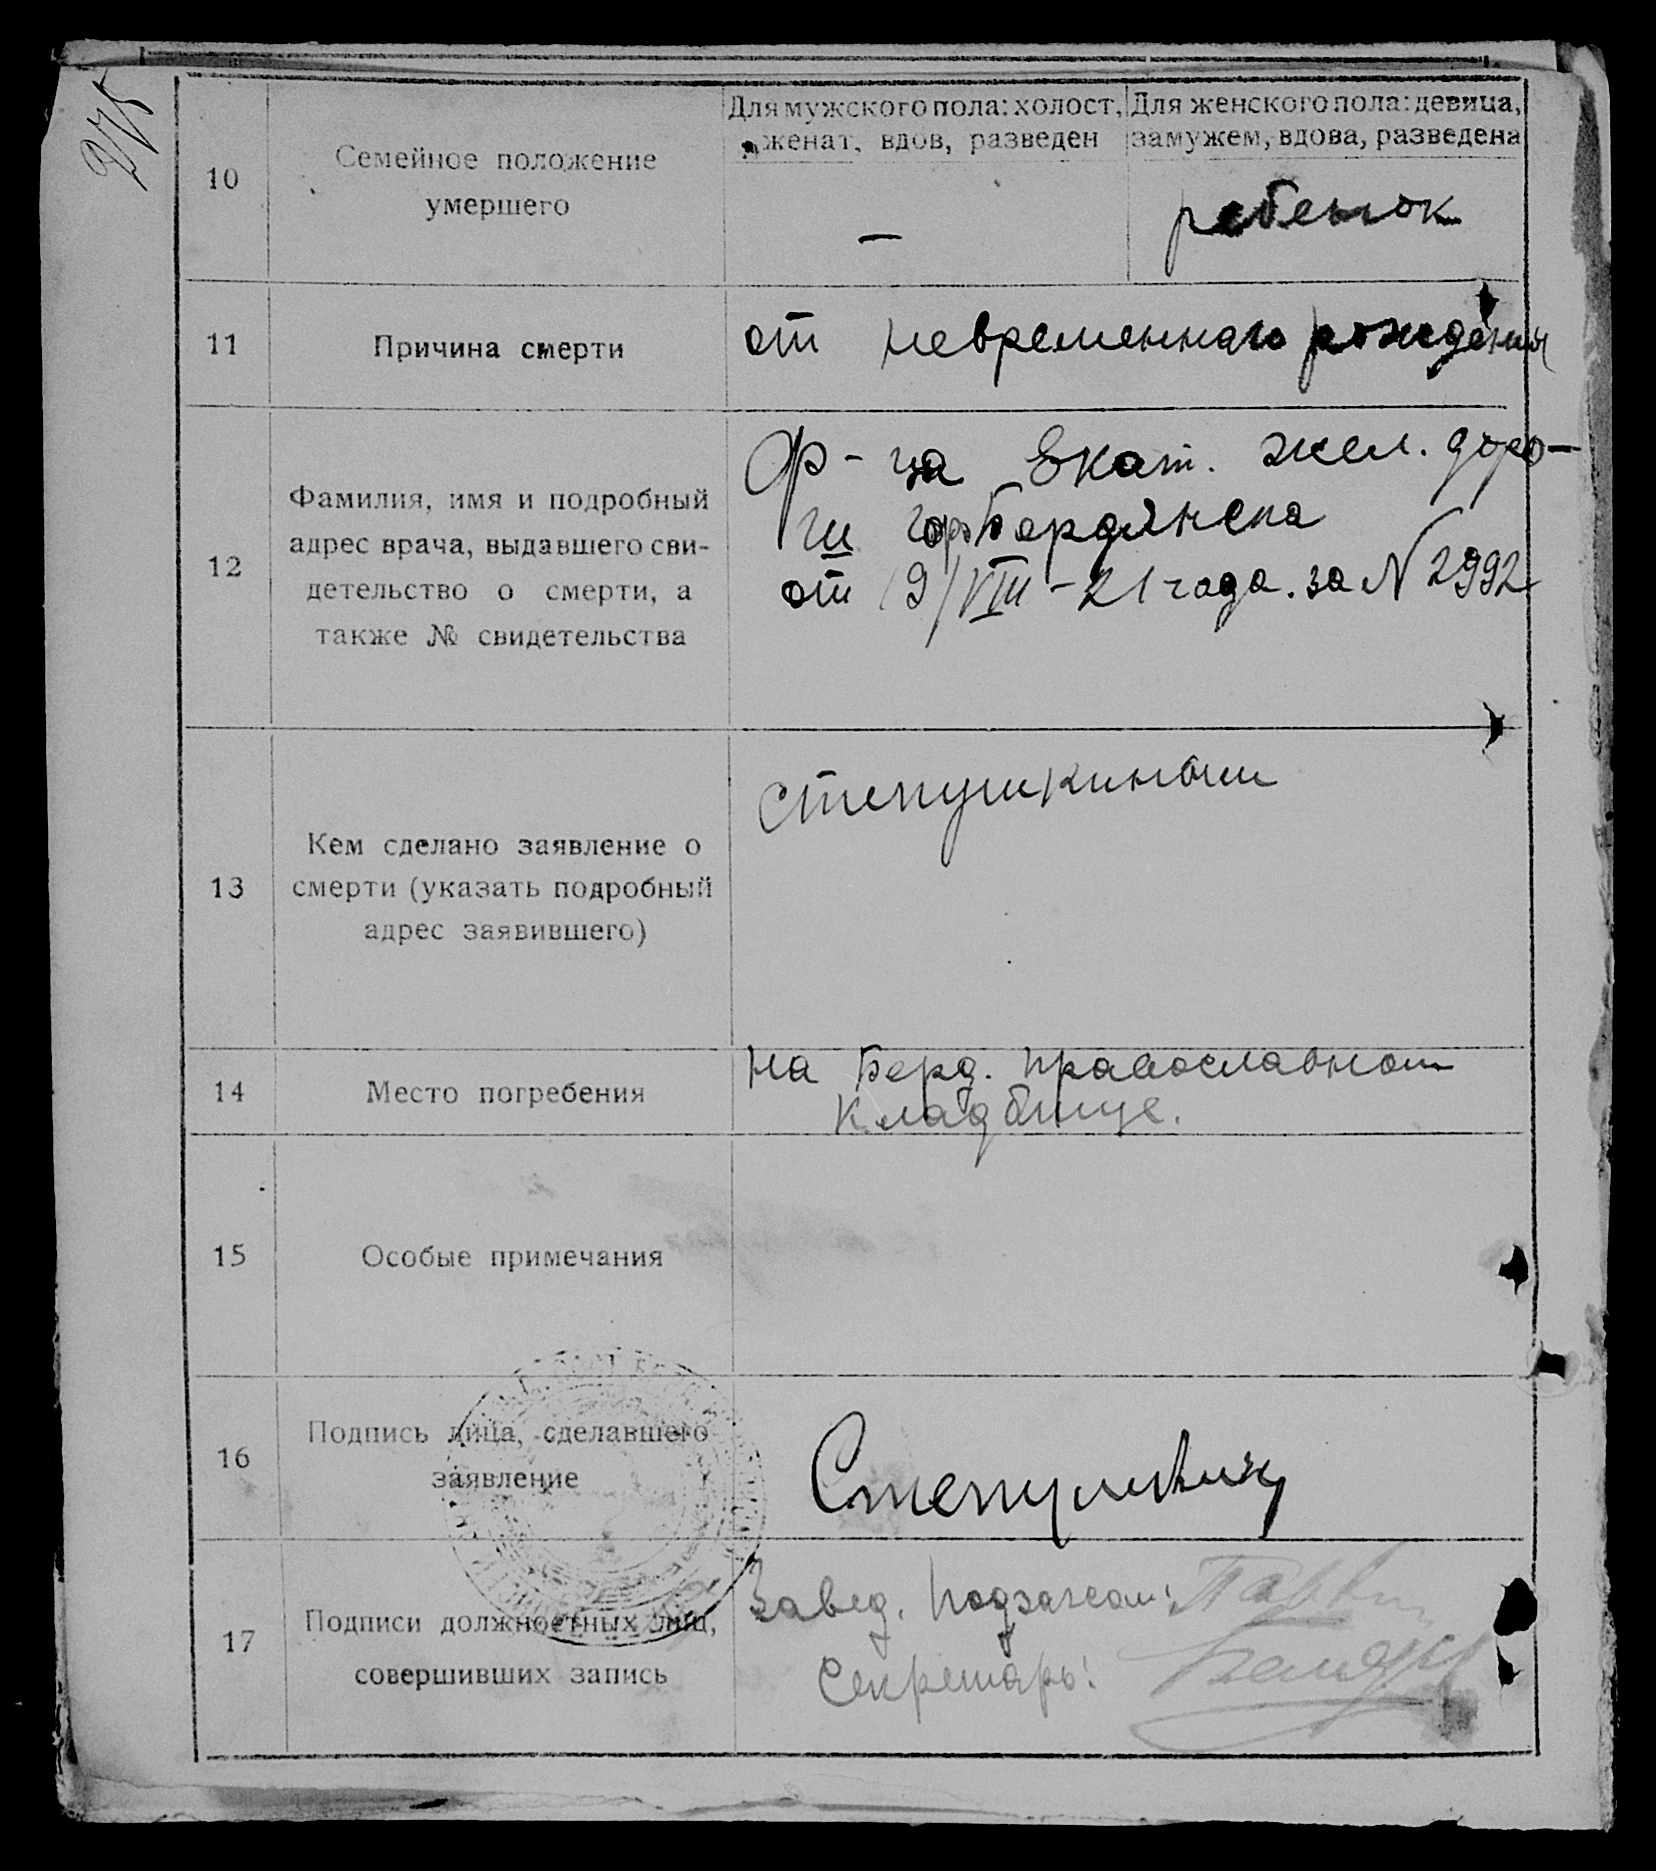 275
Для мужского пола: холост, женат, вдов, разведен
Для женского пола: девица, замужем, вдова, разведена
10
Семейное положение
умершего
—
ребенок
11
Причина смерти
от невременнаго рождения
12
Фамилия, имя и подробный
адрес врача, выдавшего сви-
детельство о смерти, а
также № свидетельства
Екат. жел. доро-
ги гор Бердянска
от 19/VIII-21 года. за N 2992
13
Кем сделано заявление о
смерти (указать подробный
адрес заявившего)
Степушкиным
14
Место погребения
на Берд. православном
кладбище.
15
Особые примечания
16
Подпись лица, сделавшего
заявление
Степушкин
17
Подписи должностных лиц,
совершивших запись
Завед. Подзагсом:
Секретарь: